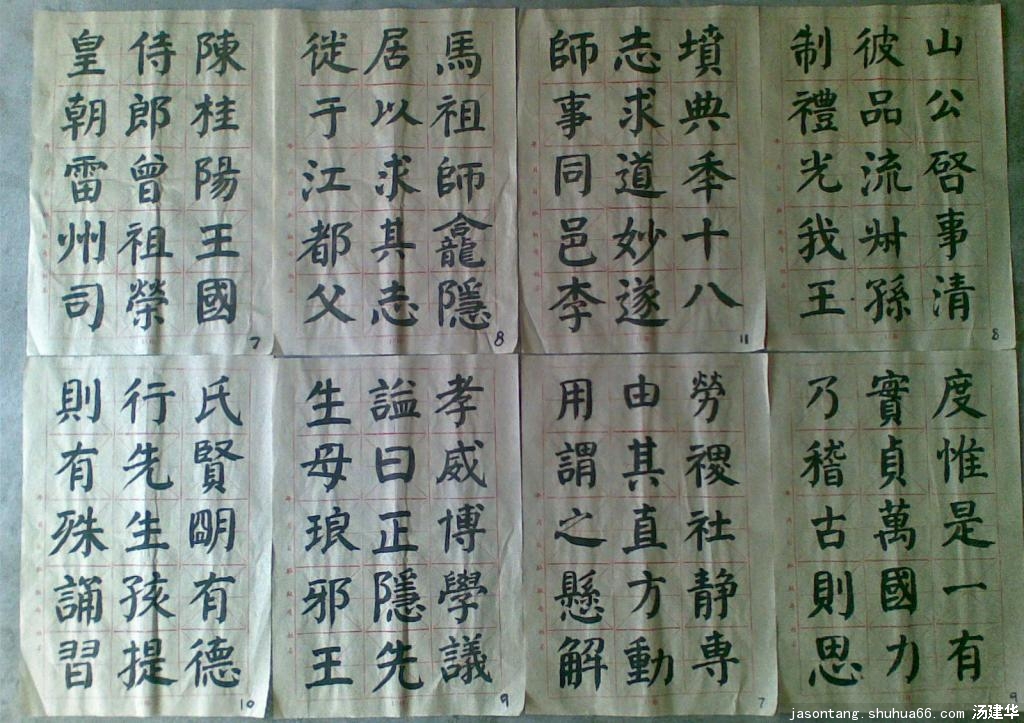 陳桂陽王國
侍郎曾祖榮
皇朝雷州司
7
馬祖師龕隱
居以求其志
徙于江都父
8
墳典季十八
志求道妙遂
師事同邑李
11
山公啓事清
彼品流叔孫
制禮光我王
8
氏賢朙有德
行先生孩提
則有殊誦習
10
孝威博學議
謚曰正隱先
生母琅邪王
9
勞稷社静専
由其直方動
用謂之懸解
7
度惟是一有
實貞萬國力
乃稽古則思
9
jasontang.shuhua66.com 汤建华